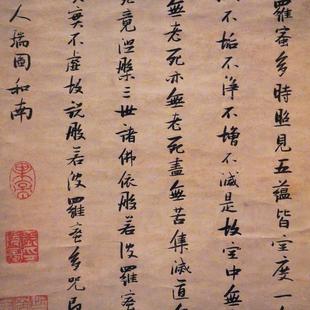 羅蜜多時照見五蘊皆空度一
不垢不淨不增不減是故空中無
無老死亦無老死盡無苦集滅道無
究竟涅槃三世諸佛依般若波羅蜜
實不虛故說般若波羅蜜多咒即
人瑞圖和南